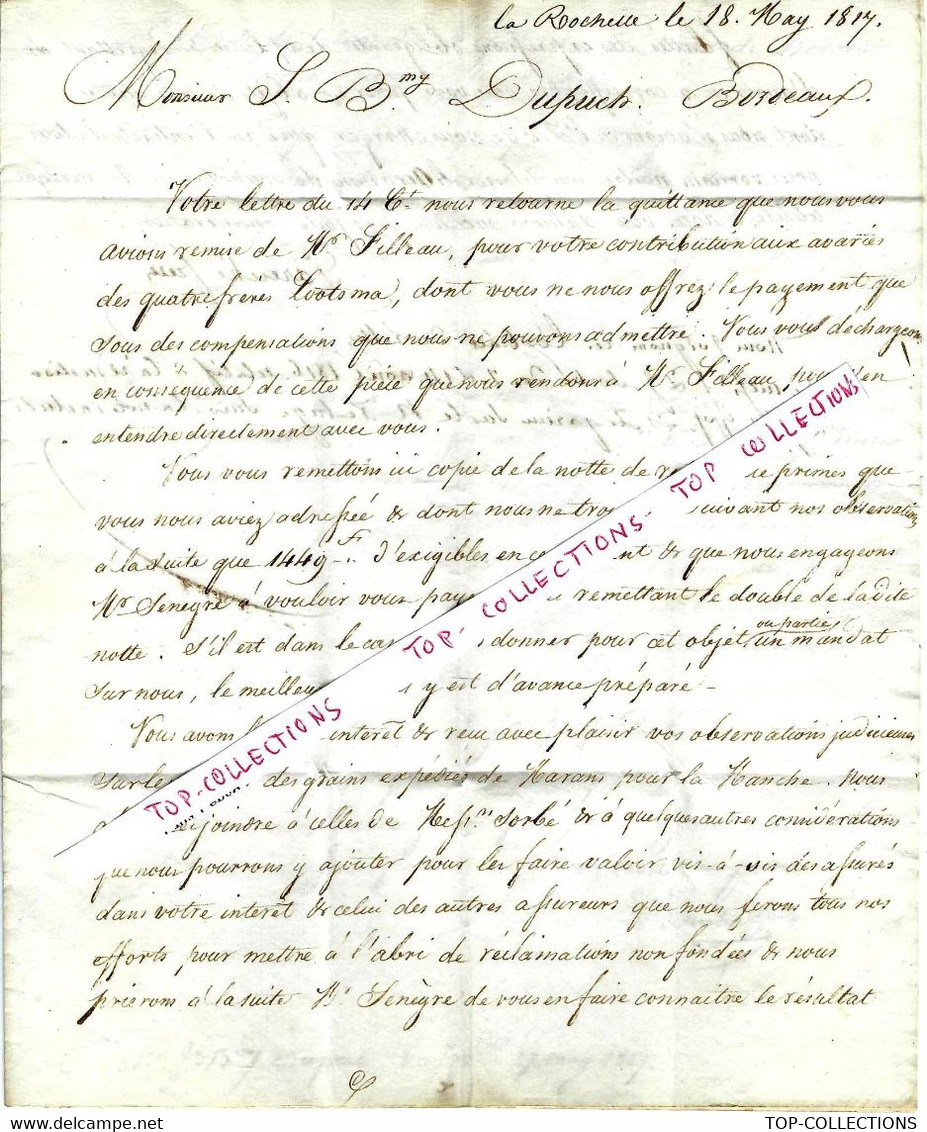 la Rochelle le 18. May 1817.
Monsieur S. B.my Dupuch. Bordeaux.
Votre lettre du 14 Ct. nous retourne la quittance que nous vous
avions remise de Mr Filleau, pour votre contribution aux avaries
des quatre freres Lootsma, dont vous ne nous offrez le payement que
sous des compensations que nous ne pouvons admettre. Nous vous dechargeons
en consequence de cette pièce que nous rendons à Mr Filleau, pour s'en
entendre directement avec vous.
Nous vous remettons ici copie de la notte de primes que
vous nous aviez adressée & dont nous ne suivant nos observations
à la suite que 1449 f -.. d'exigibles en & que nous engageons
Mr Senègre à vouloir vous remettant le double de la dite
notte. S'il est dans le cas donner pour cet objet ou partie un mandat
sur nous, le meilleur y est d'avance préparé -
Nous avons interet & reçu avec plaisir vos observations judicieuses
sur les des grains expediés de Marans pour la Manche. nous
joindre à celles de Mess.rs Sorbé & à quelques autres considérations
que nous pourrons y ajouter pour les faire valoir vis-à-vis des assurés
dans votre interet & celui des autres assureurs que nous ferons tous nos
efforts pour mettre à l'abri de réclamations non fondées & nous
prierons à la suite Mr Senègre de vous en faire connaitre le résultat
TOP-COLLECTIONS TOP-COLLECTIONS- TOP COLLECTIONS
TOP-COLLECTIONS